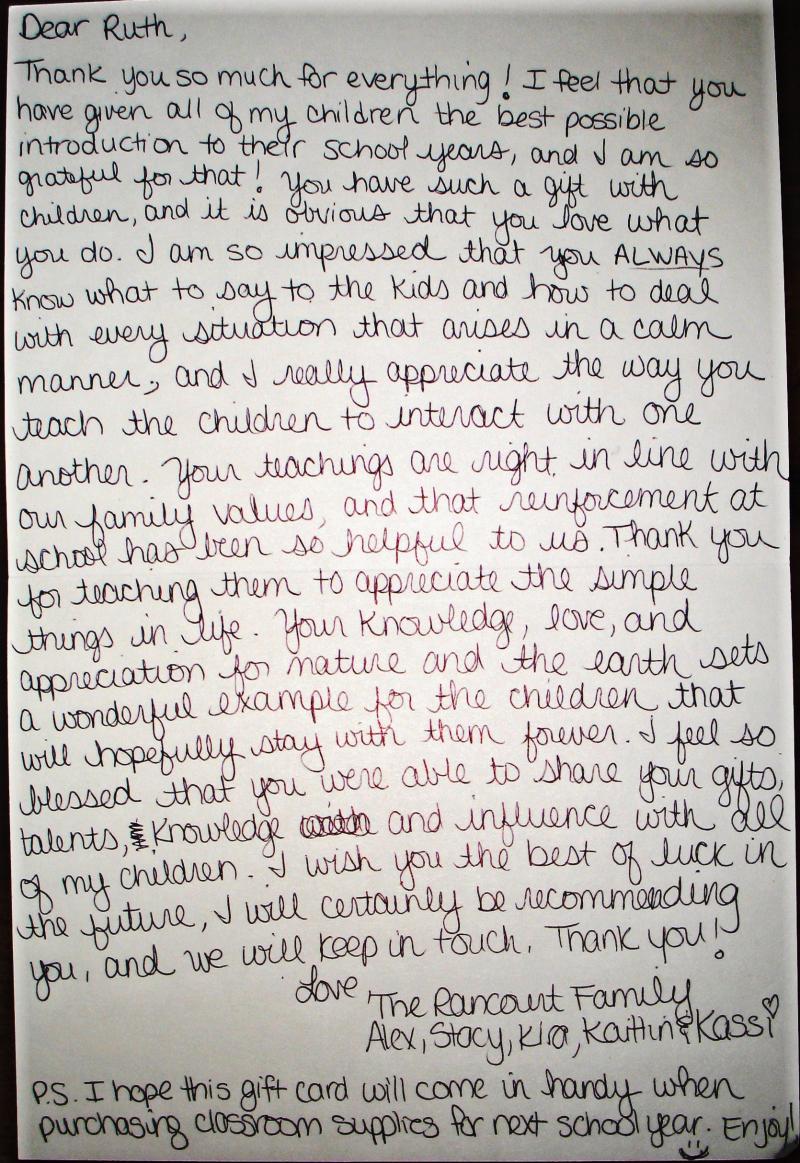 Dear Ruth,
Thank you so much for everything! I feel that you
have given all of my children the best possible
introduction to their school years, and I am so
grateful for that! You have such a gift with
children, and it is obvious that you love what
you do. I am so impressed that you ALWAYS
know what to say to the kids and how to deal
with every situation that arises in a calm
manner, and I really appreciate the way you
teach the children to interact with one
another. Your teachings are right in line with
our family values, and that reinforcement at
school has been so helpful to us. Thank you
for teaching them to appreciate the simple
things in life. Your knowledge, love, and
appreciation for nature and the earth sets
a wonderful example for the children that
will hopefully stay with them forever. I feel so
blessed that you were able to share your gifts,
talents, knowledge and influence with all
of my children. I wish you the best of luck in
the future, I will certainly be recommending
you, and we will keep in touch. Thank you!
Love
The Rancourt Family
Alex, Stacy, Kira, Kaitlin & Kassi
P.S. I hope this gift card will come in handy when
purchasing classroom supplies for next school year. Enjoy!